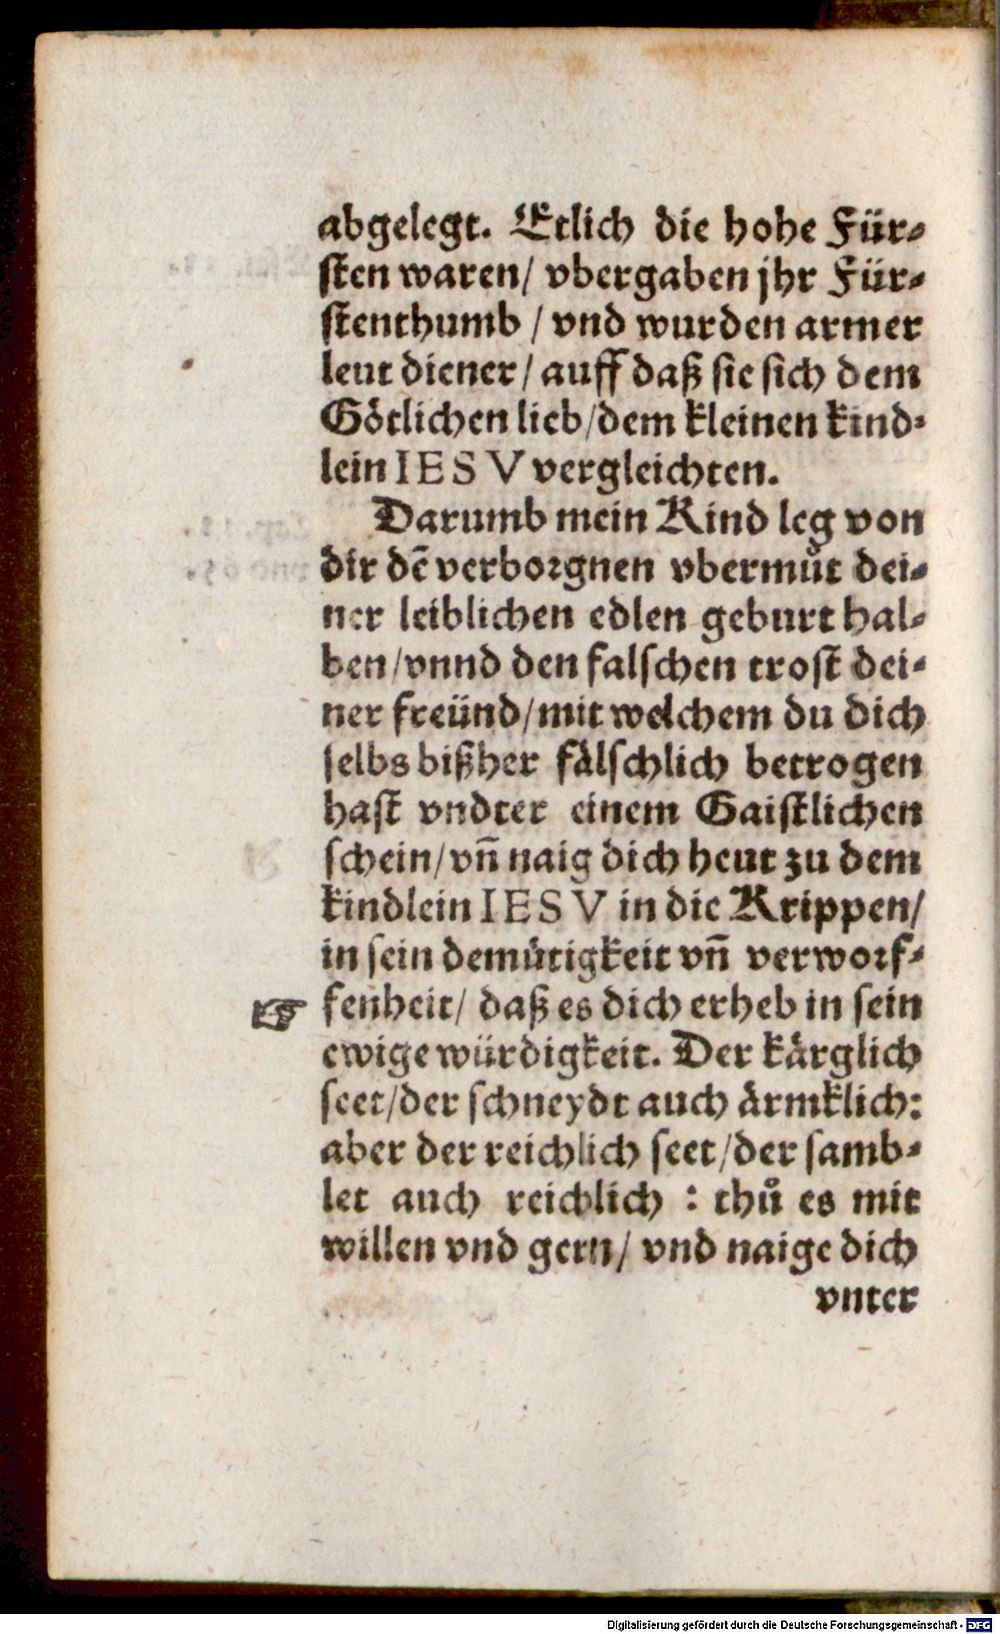 abgelegt. Etlich die hohe Für⸗
sten waren/ vbergaben jhr Für⸗
stenthumb / vnd wurden armer
leut diener/ auff daß sie sich dem
Götlichen lieb/dem kleinen kind⸗
lein IESV vergleichten.
Darumb mein Kind leg von
dir dē verborgnen vbermůt dei⸗
ner leiblichen edlen geburt hal⸗
ben/vnnd den falschen trost dei⸗
ner freünd/mit welchem du dich
selbs bißher fälschlich betrogen
hast vndter einem Gaistlichen
schein/vñ naig dich heut zu dem
kindlein IESV in die Krippen/
in sein demütigkeit vñ verworf⸗
☞ fenheit/ daß es dich erheb in sein
ewige würdigkeit. Der kärglich
seet/der schneydt auch ärmklich:
aber der reichlich seet/der samb⸗
let auch reichlich : thů es mit
willen vnd gern/ vnd naige dich
vnter
Digitalisierung gefördert durch die Deutsche Forschungsgemeinschaft - DFG